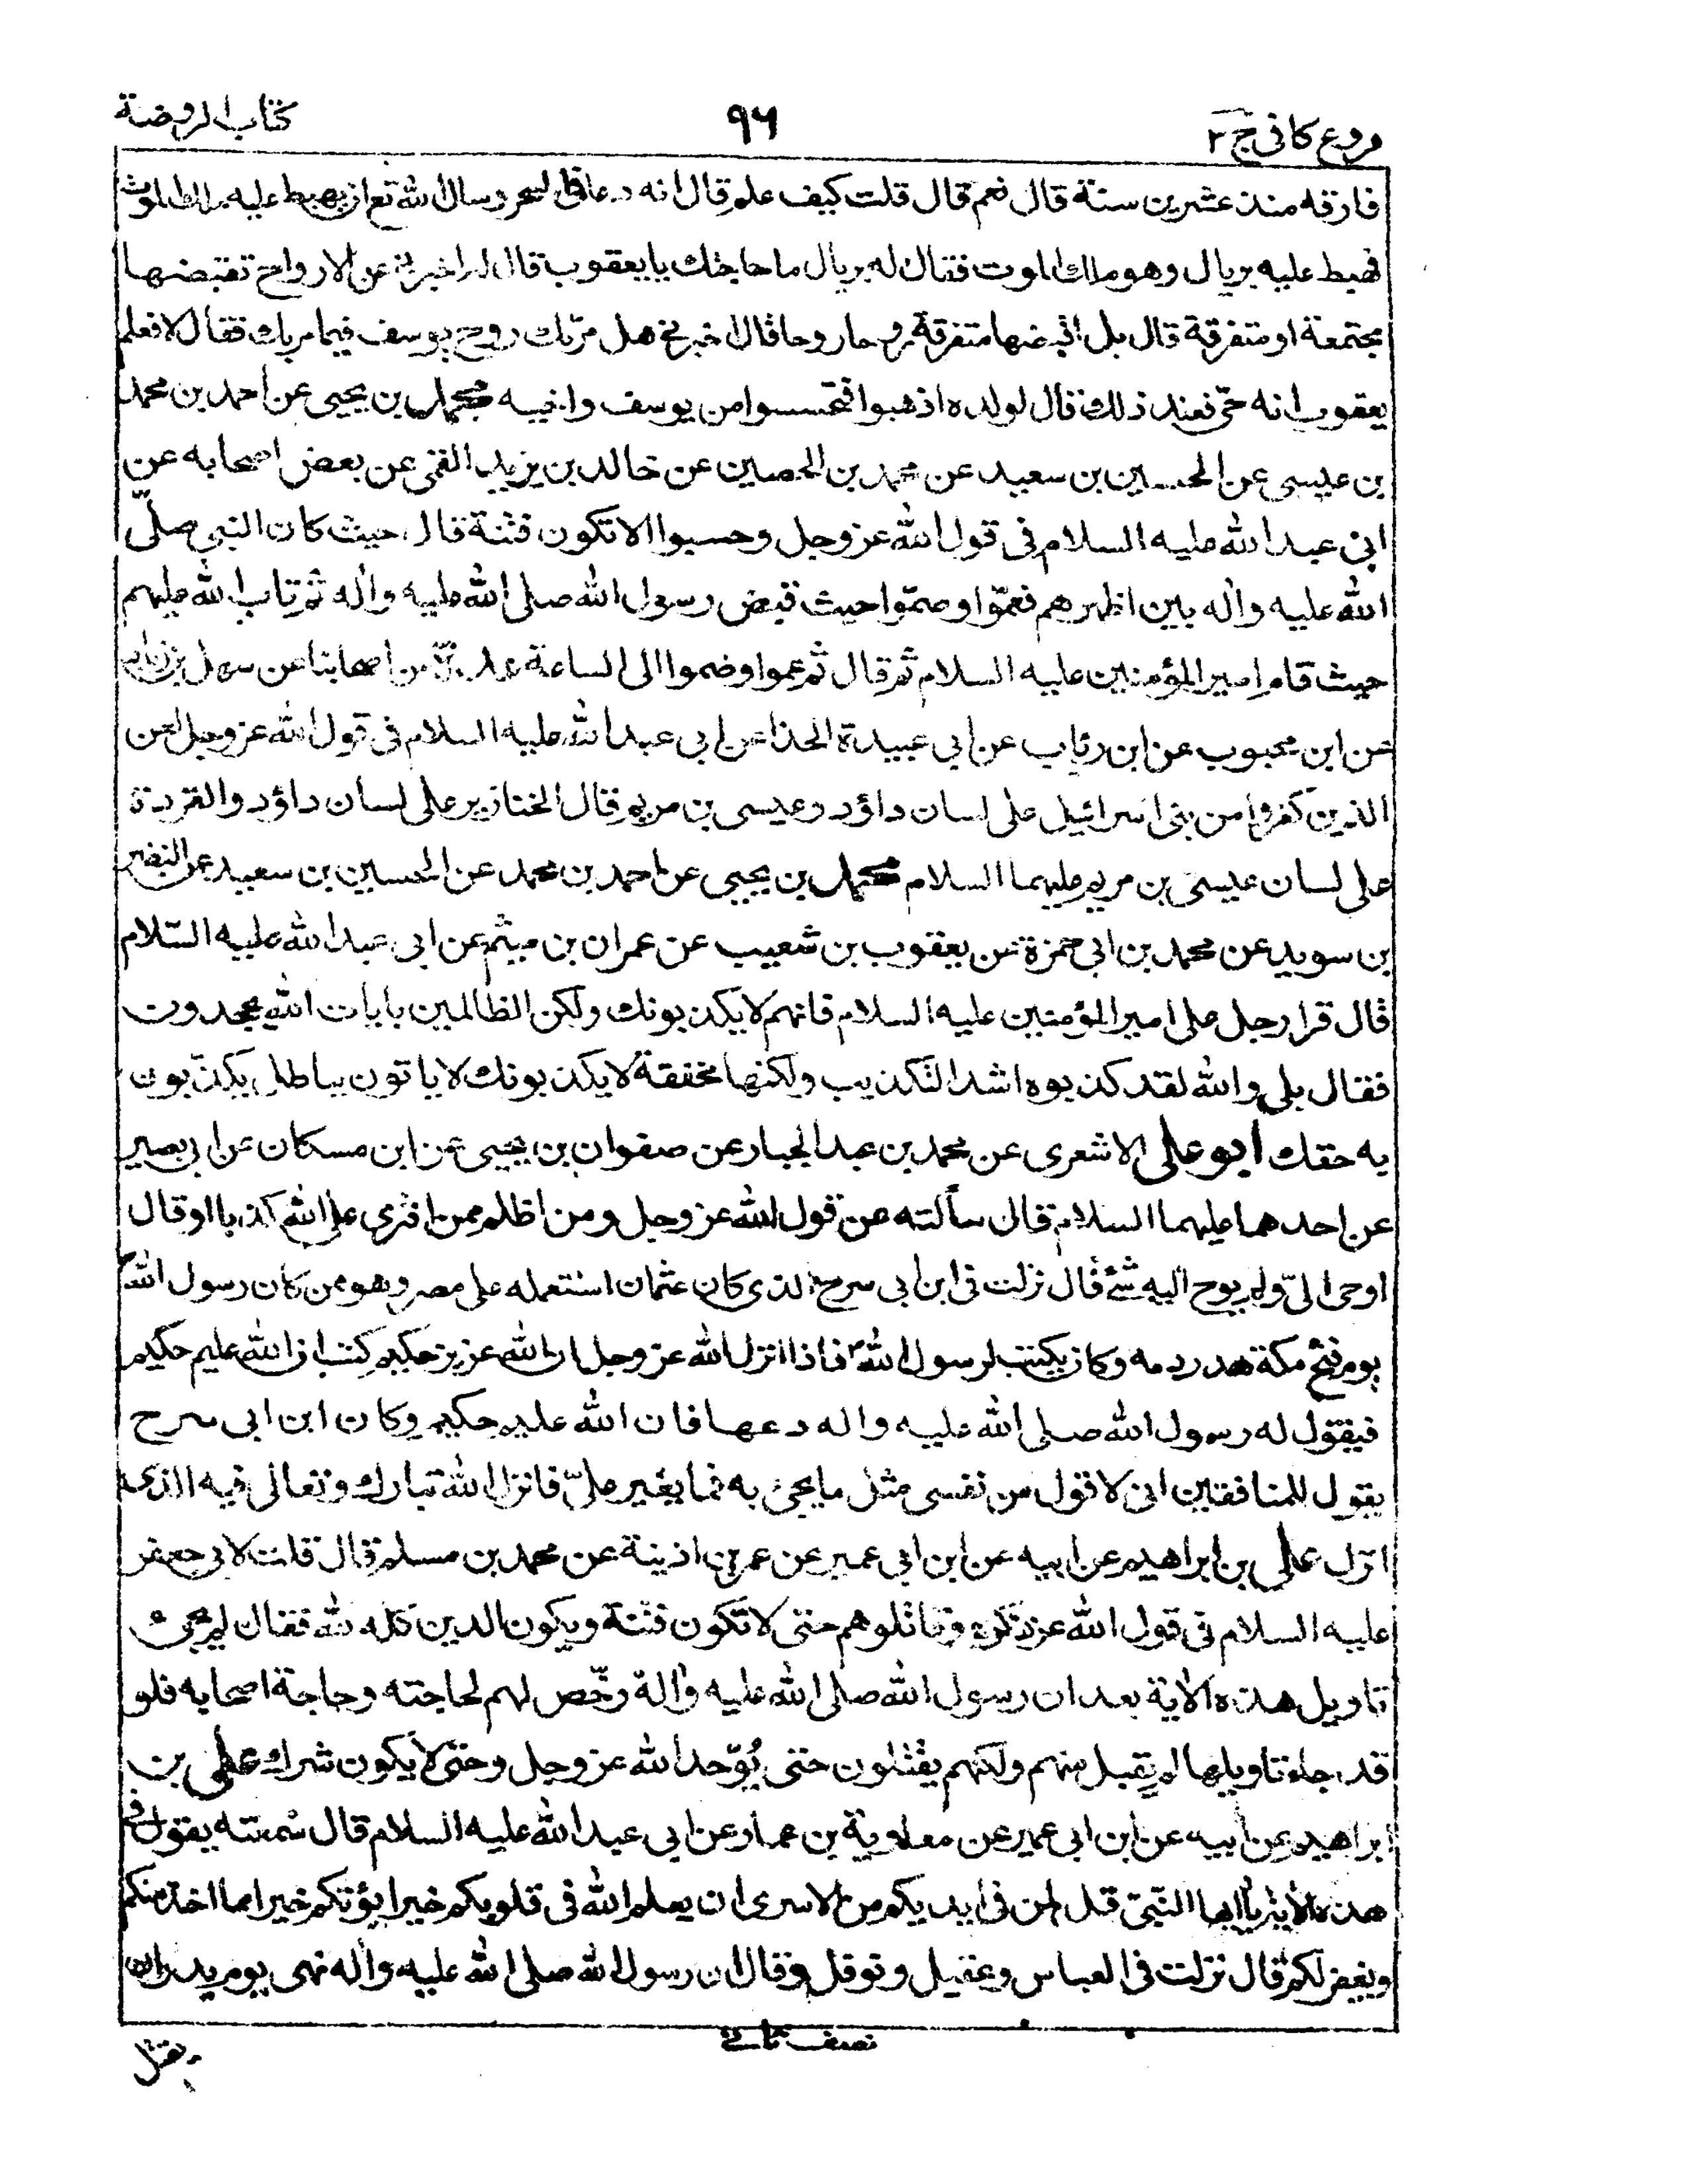 فروع کافی ج ۲
۹۶
کتاب الروضة
فارقه منذ عشرین سنة قال نعم قال قلت کیف علم قال انه دعا فی السحر وسال الله تع ان یهبط علیه ملك الموت
فهبط علیه بریال وهو ملك الموت فقال له بریال ما حاجتك یا یعقوب قال له اخبرنی عن الارواح تقبضها
مجتمعة او متفرقة قال بل اقبضها متفرقة روحا روحا قال اخبرنی هل مرّ بك روح یوسف فیما مر بك فقال لا فعلم
یعقوب انه حیّ فعند ذلك قال لولده اذهبوا فتحسسوا من یوسف واخیه محمد بن یحیی عن احمد بن محمد
بن عیسی عن الحسین بن سعید عن محمد بن الحصین عن خالد بن یزید القمی عن بعض اصحابه عن
ابی عبد الله علیه السلام فی قول الله عز وجل وحسبوا الا تکون فتنة قال حیث کان النبی صلّی
الله علیه واله بین اظهرهم فعمّوا وصمّوا حیث قبض رسول الله صلی الله علیه واله ثم تاب الله علیهم
حیث قام امیر المؤمنین علیه السلام ثم قال ثم عموا وصموا الی الساعة عدّة من اصحابنا عن سهل بن زیاد
عن ابن محبوب عن ابن رئاب عن ابی عبیدة الحذا عن ابی عبد الله علیه السلام فی قول الله عز وجل لعن
الذین کفروا من بنی اسرائیل علی لسان داؤد وعیسی بن مریم قال الخنازیر علی لسان داؤد والقردة
علی لسان عیسی بن مریم علیهما السلام محمد بن یحیی عن احمد بن محمد عن الحسین بن سعید عن النضر
بن سوید عن محمد بن ابی حمزة عن یعقوب بن شعیب عن عمران بن میثم عن ابی عبد الله علیه السّلام
قال قرا رجل علی امیر المؤمنین علیه السلام فانهم لا یکذبونك ولکن الظالمین بایات الله یجحدون
فقال بلی والله لقد کذبوه اشد التکذیب ولکنها مخففة لا یکذبونك لا یاتون بباطل یکذّبون
به حقك ابو علی الاشعری عن محمد بن عبد الجبار عن صفوان بن یحیی عن ابن مسکان عن ابی بصیر
عن احدهما علیهما السلام قال سألته عن قول الله عز وجل ومن اظلم ممن افتری علی الله کذبا او قال
اوحی الیّ ولم یوح الیه شئ قال نزلت فی ابن ابی سرح الذی کان عثمان استعمله علی مصر وهو ممن کان رسول الله
یوم فتح مکة هدر دمه وکان یکتب لرسول الله فاذا انزل الله عز وجل ان الله عزیز حکیم کتب ان الله علیم حکیم
فیقول له رسول الله صلی الله علیه واله دعها فان الله علیم حکیم وکان ابن ابی سرح
یقول للمنافقین انی لاقول من نفسی مثل ما یجئ به فما یغیر علیّ فانزل الله تبارك وتعالی فیه الذی
انزل علی بن ابراهیم عن ابیه عن ابن ابی عمیر عن عمر بن اذینة عن محمد بن مسلم قال قلت لابی جعفر
علیه السلام فی قول الله عز ذکره وقاتلوهم حتی لا تکون فتنة ویکون الدین کله لله فقال لم یجئ
تاویل هذه الایة بعد ان رسول الله صلی الله علیه واله رخّص لهم لحاجته وحاجة اصحابه فلو
قد جاء تاویلها لم یقبل منهم ولکنهم یقتلون حتی یُوّحد الله عز وجل وحتی لا یکون شرك علی بن
ابراهیم عن ابیه عن ابن ابی عمیر عن معاویة بن عمار عن ابی عبد الله علیه السلام قال سمعته یقول فی
هذه الایة یا ایها النّبیّ قل لمن فی ایدیکم من الاسری ان یعلم الله فی قلوبکم خیرا یؤتکم خیرا مما اخذ منکم
ویغفر لکم قال نزلت فی العباس وعقیل ونوفل وقال ان رسول الله صلی الله علیه واله نهی یوم بدر ان
نصف ثانی
یقتل